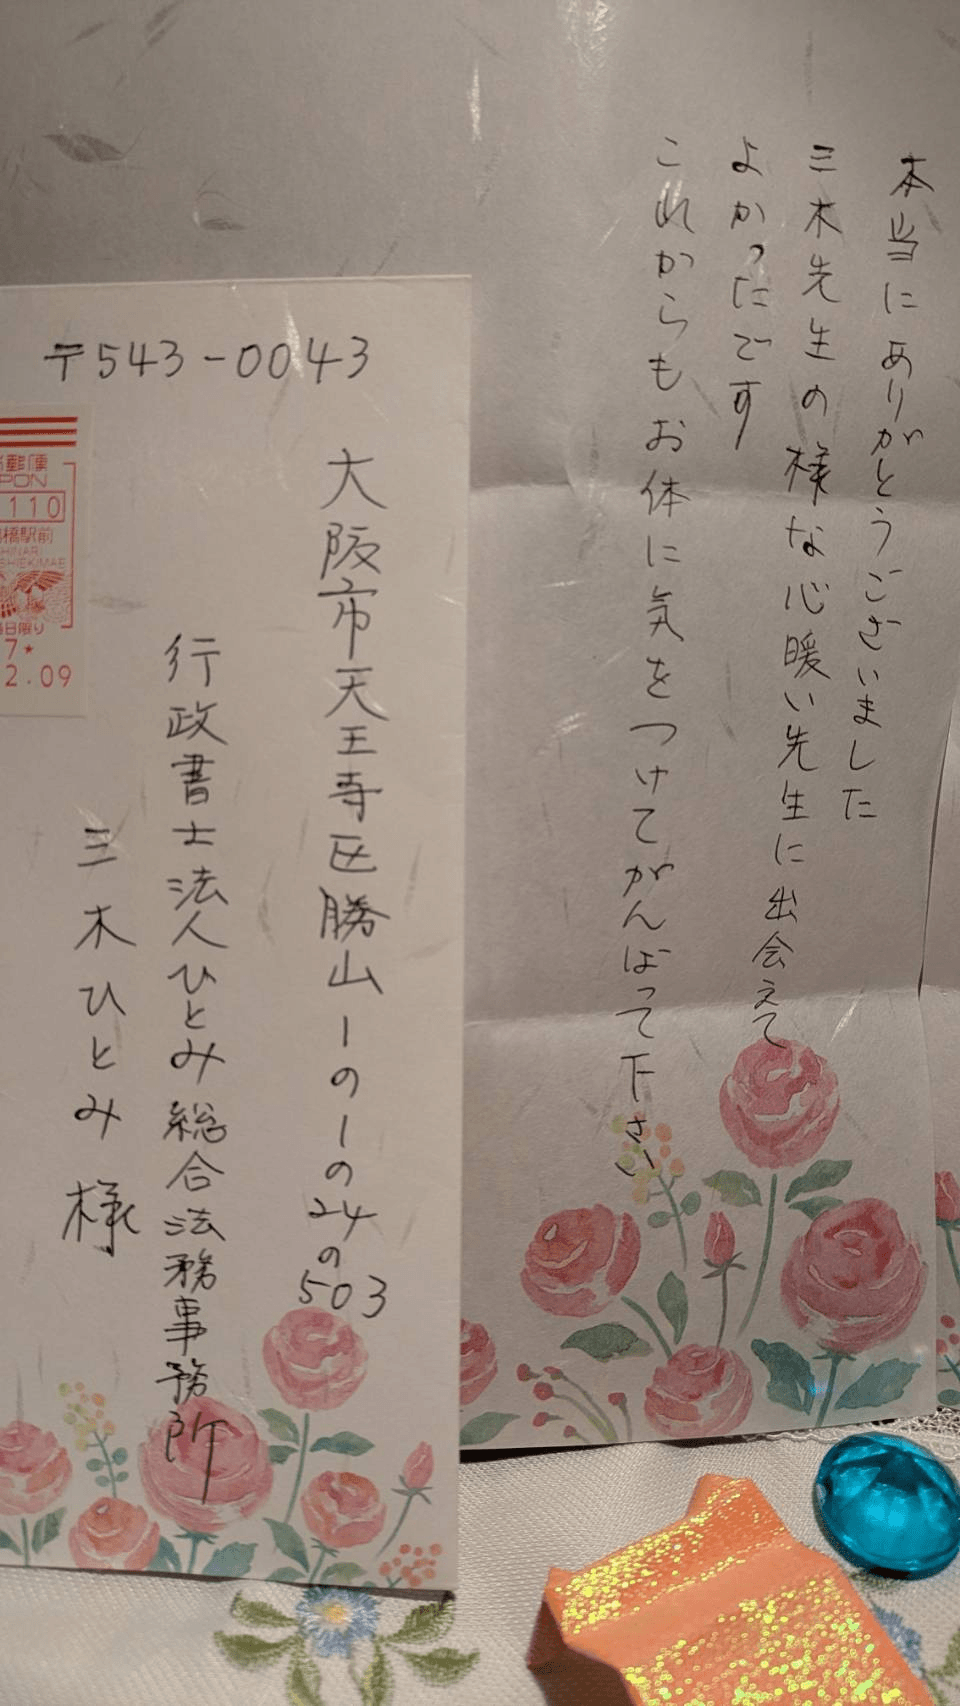 本当にありがとうございました
三木先生の様な心暖い先生に出会えて
よかったです
これからもお体に気をつけてがんばって下さい
〒543-0043
大阪市天王寺区勝山1の1の24の503
行政書士法人ひとみ総合法務事務所
三木ひとみ 様
郵便
PON
110
橋駅前
HINAR
SHIEKIMAE
日限り
7★
2.09